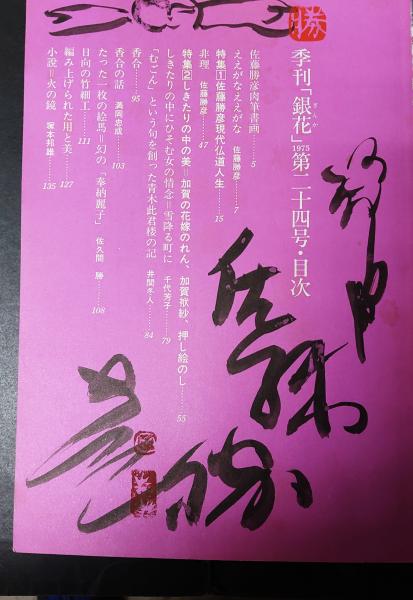 勝
季刊「銀花」1975第二十四号・目次
ぎんか
佐藤勝彦肉筆書画……5
ええがなええがな 佐藤勝彦……7
特集1佐藤勝彦現代仏道人生……15
非理 佐藤勝彦……47
特集2しきたりの中の美=加賀の花嫁のれん、加賀袱紗、押し絵のし……55
しきたりの中にひそむ女の情念=雪降る町に 千代芳子……79
「むごん」という句を創った青木此君楼の記 井関冬人……84
香合……95
香合の話 満岡忠成……103
たった一枚の絵馬=幻の「奉納麗子」 佐久間 勝……108
日向の竹細工……111
編み上げられた用と美……127
小説=火の鏡 塚本邦雄……135
佐藤勝彦